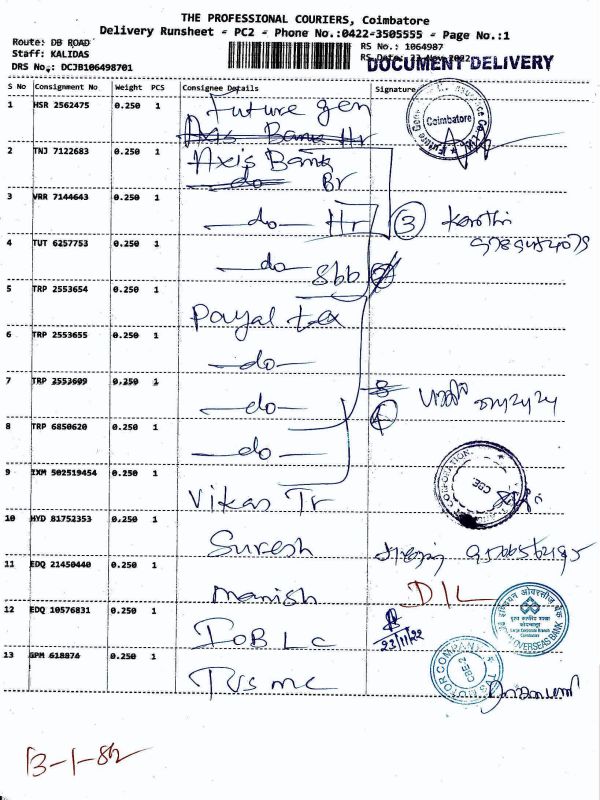 THE PROFESSIONAL COURIERS, Coimbatore
Delivery Runsheet - PC2 - Phone No.:0422-3505555 - Page No.:1
Route: DB ROAD
RS No.: 1064987
Staff: KALIDAS
DOCUMENT DELIVERY
DRS No.: DCJB106498701
S No Consignment No Weight PCS Consignee Details Signature
1 HSR 2562475 0.250 1 Future gen
Axis Bank Hr
Coimbatore
2 TNJ 7122683 0.250 1 Axis Bank
do Br
3 VRR 7144643 0.250 1
do Hr 3
4 TUT 6257753 0.250 1
do Sbb
5 TRP 2553654 0.250 1
Payal tex
6 TRP 2553655 0.250 1
do
7 TRP 2553609 0.250 1
do
8 TRP 6850620 0.250 1
do
9 IXM 502519454 0.250 1
Vikas Tr
CORPORATION
CBE
10 HYD 81752353 0.250 1
Suresh
11 EDQ 21450440 0.250 1
Manish DIL
12 EDQ 10576831 0.250 1
IOB Lc 23/11/22
OVERSEAS BANK
13 GPM 618874 0.250 1
TVS mc
MOTOR COMPANY
CBE 2